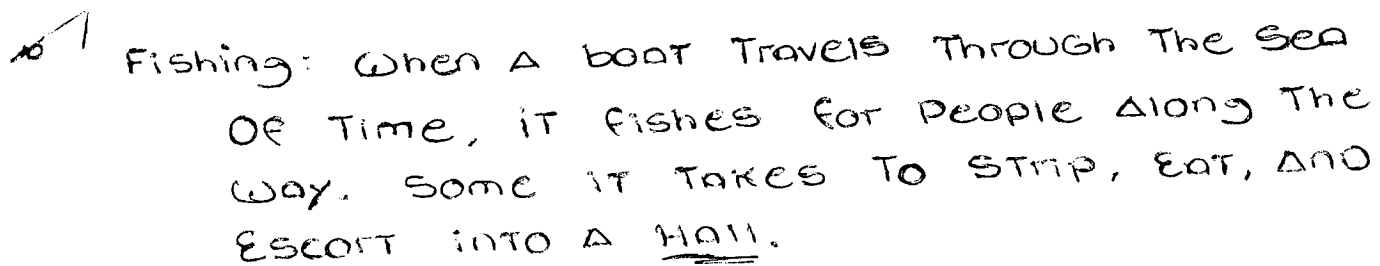 Fishing: When A boat Travels Through The Sea
Of Time, it fishes for People Along The
Way. Some it Takes To Strip, Eat, And
Escort into A Hall.